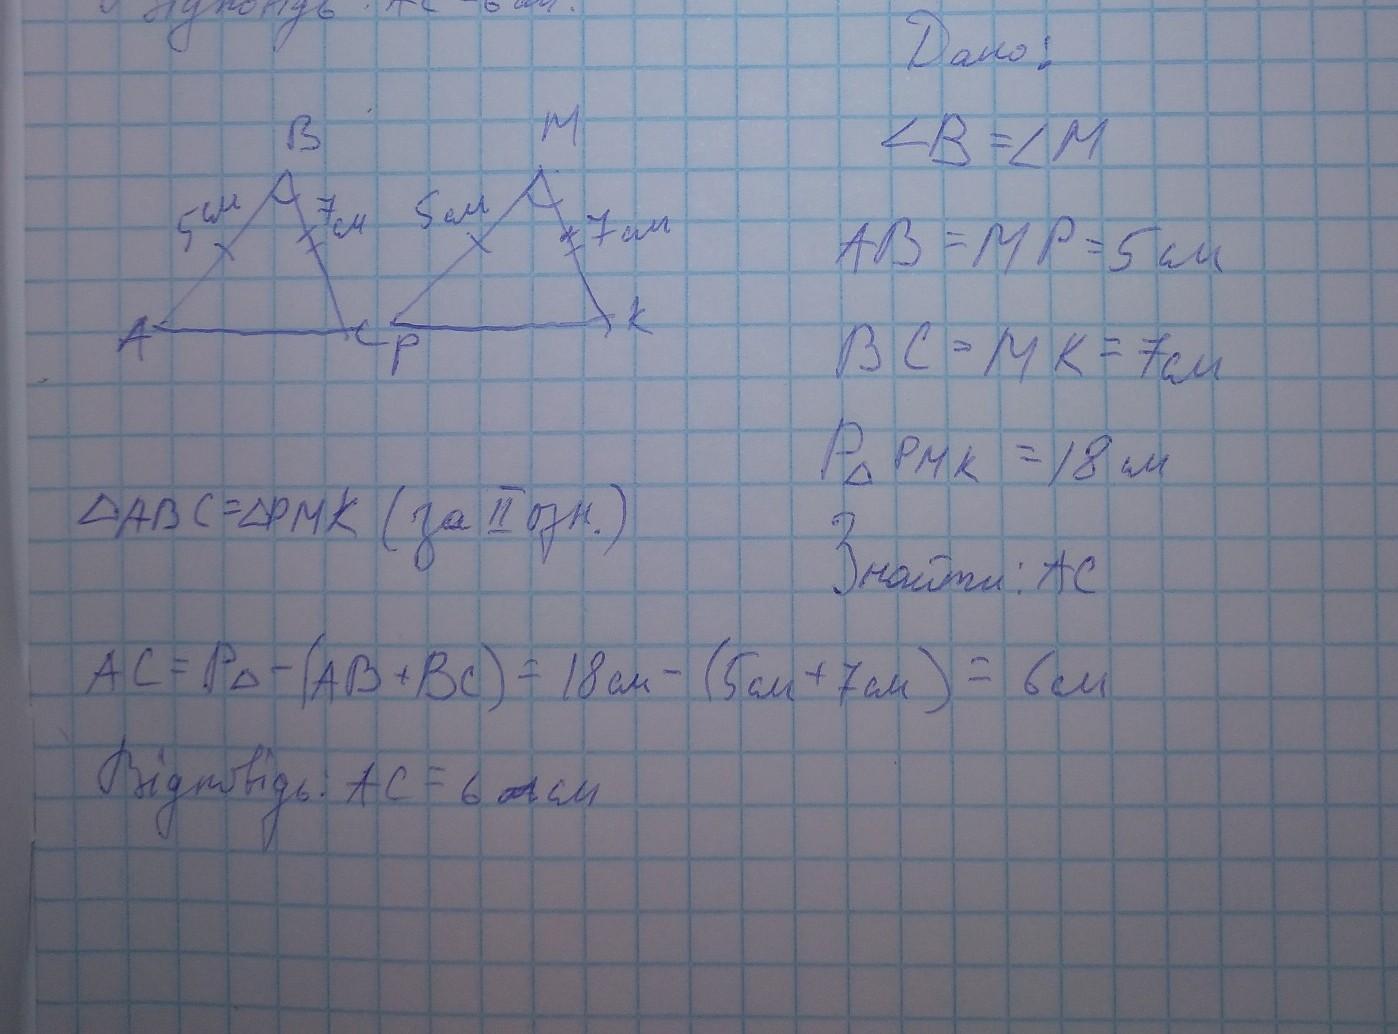 Відповідь: AC = 6 см.
Дано:
B
M
∠B = ∠M
5 см
7 см
5 см
7 см
AB = MP = 5 см
A
C
P
K
BC = MK = 7 см
P△ PMK = 18 см
△ABC = △PMK (за II озн.)
Знайти: AC
AC = P△ - (AB + BC) = 18 см - (5 см + 7 см) = 6 см
Відповідь: AC = 6 см